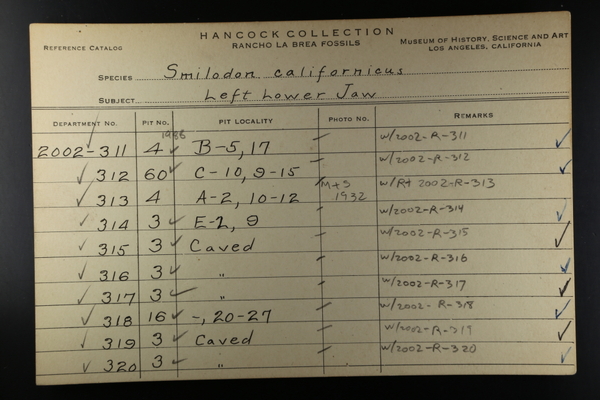 HANCOCK COLLECTION
REFERENCE CATALOG RANCHO LA BREA FOSSILS MUSEUM OF HISTORY, SCIENCE AND ART
LOS ANGELES, CALIFORNIA
SPECIES Smilodon californicus
SUBJECT Left Lower Jaw
DEPARTMENT NO. PIT NO. PIT LOCALITY PHOTO NO. REMARKS
1986
2002-311 4 ✓ B-5, 17 w/2002-R-311 ✓
✓ 312 60 ✓ C-10, 9-15 w/2002-R-312 ✓
✓ 313 4 A-2, 10-12 M+S 1932 w/Rt 2002-R-313
✓ 314 3 ✓ E-2, 9 w/2002-R-314 ✓
✓ 315 3 ✓ Caved w/2002-R-315 ✓
✓ 316 3 ✓ " w/2002-R-316 ✓
✓ 317 3 ✓ " w/2002-R-317 ✓
✓ 318 16 ✓ -, 20-27 w/2002-R-318 ✓
✓ 319 3 ✓ Caved w/2002-R-319 ✓
✓ 320 3 ✓ " w/2002-R-320 ✓